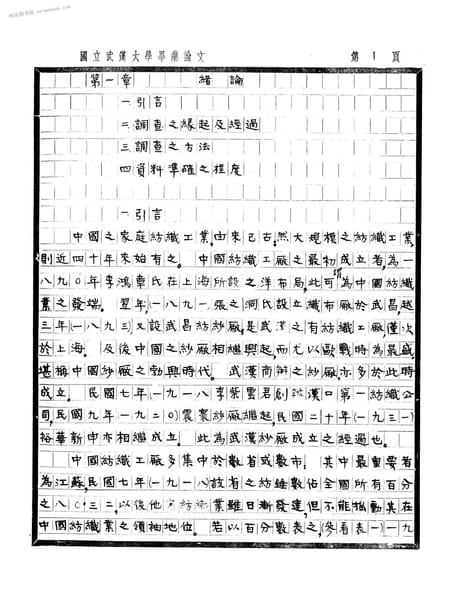 國立武漢大學畢業論文 第 1 頁
第一章 緒論
一.引言
二.調查之緣起及經過
三.調查之方法
四.資料準確之程度
一.引言
中國之家庭紡織工業,由來已古.然大規模之紡織工業,
則近四十年來始有之。 中國紡織工廠之最初成立者,為一
八九〇年李鴻章氏在上海所設之洋布局,此可謂為中國紡織
業之發端。 翌年,(一八九一)張之洞氏設立織布廠於武昌,越
三年(一八九三)又設武昌紡紗廠,是武漢之有紡織工廠,僅次
於上海。 及後中國之紗廠相繼興起,而尤以歐戰時為最盛,
堪稱中國紗廠之勃興時代。 武漢商辦之紗廠,亦多於此時
成立。 民國七年(一九一八)李紫雲君創辦漢口第一紡織公
司,民國九年(一九二〇)震寰紗廠繼起,民國二十年(一九三一)
裕華新申亦相繼成立。 此為武漢紗廠成立之經過也。
中國紡織工廠多集中於數省或數市。 其中最重要者
為江蘇,民國七年(一九一八)該省之紡錘佔全國所有百分
之八〇.三二,以後他省紡織業雖日漸發達,但不能搖動其在
中國紡織業之領袖地位。 若以百分數表之,(參看表一)一九